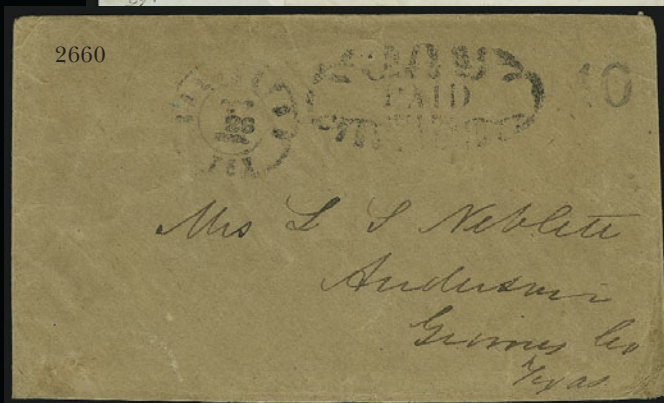 2660
TEX
PAID
10
Mrs L S Neblett
Anderson
Grimes Co
Texas